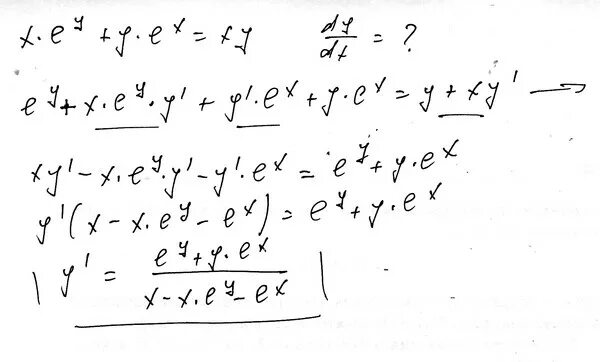 x·e^y + y·e^x = xy    dy/dx = ?
e^y + x·e^y·y' + y'·e^x + y·e^x = y + xy' →
xy' - x·e^y·y' - y'·e^x = e^y + y·e^x
y'(x - x·e^y - e^x) = e^y + y·e^x
| y' = (e^y + y·e^x)/(x - x·e^y - e^x) |